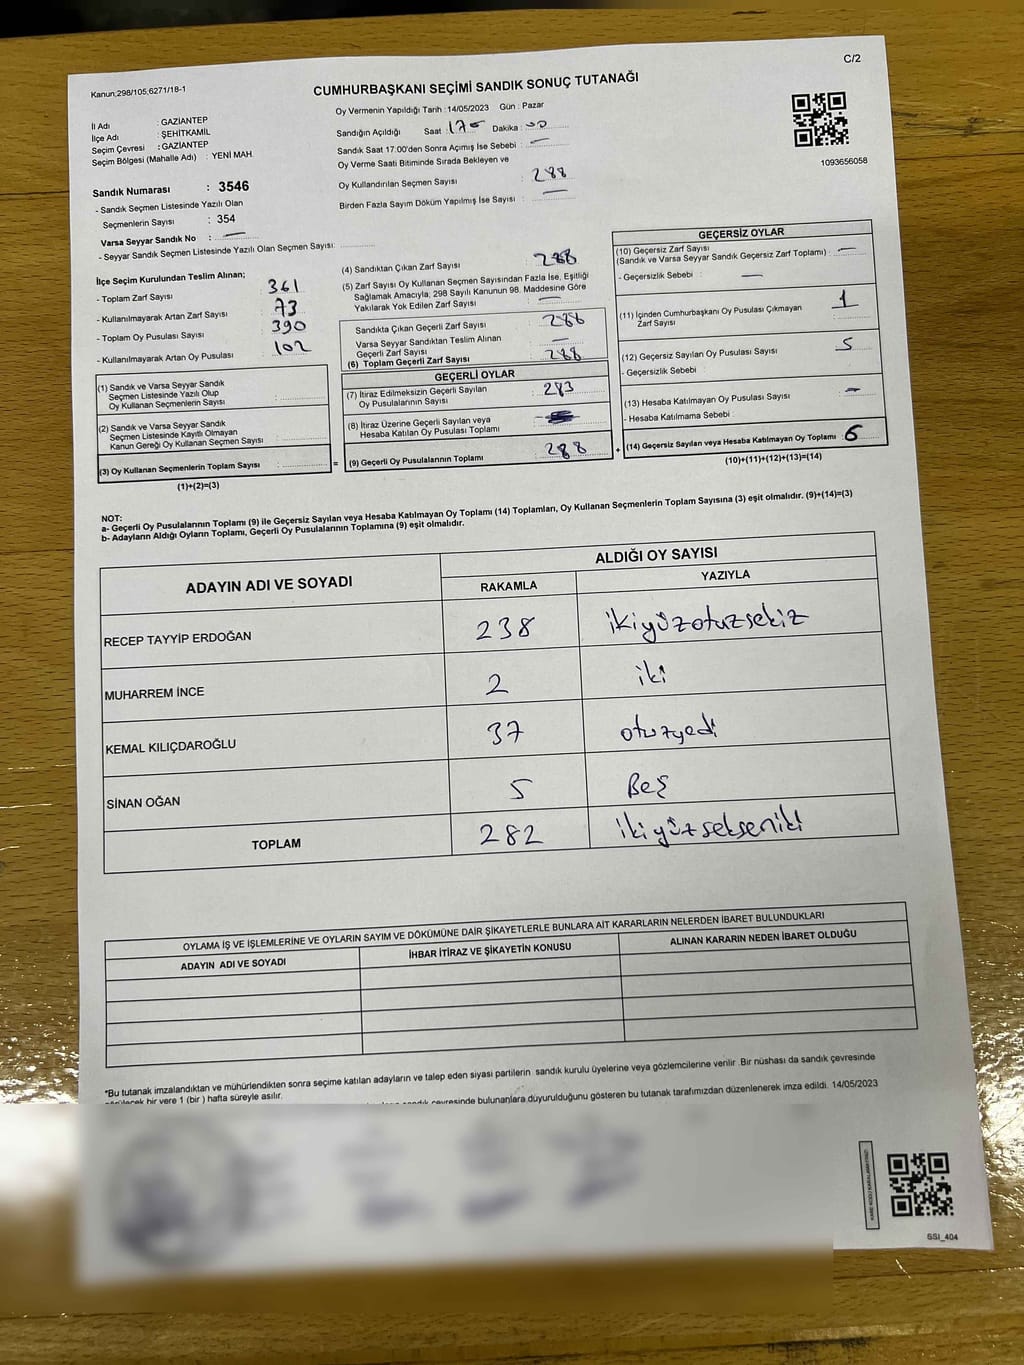 C/2
Kanun;298/105,6271/18-1
CUMHURBAŞKANI SEÇİMİ SANDIK SONUÇ TUTANAĞI
Oy Vermenin Yapıldığı Tarih : 14/05/2023 Gün : Pazar
İl Adı : GAZİANTEP
İlçe Adı : ŞEHİTKAMİL
Seçim Çevresi : GAZİANTEP
Seçim Bölgesi (Mahalle Adı) : YENİ MAH.
Sandığın Açıldığı Saat : Dakika :
Sandık Saat 17:00'den Sonra Açımış İse Sebebi : —
Oy Verme Saati Bitiminde Sırada Bekleyen ve
Oy Kullandırılan Seçmen Sayısı : 288
Birden Fazla Sayım Döküm Yapılmış İse Sayısı : —
1093656058
Sandık Numarası : 3546
- Sandık Seçmen Listesinde Yazılı Olan
Seçmenlerin Sayısı : 354
Varsa Seyyar Sandık No : —
- Seyyar Sandık Seçmen Listesinde Yazılı Olan Seçmen Sayısı:
İlçe Seçim Kurulundan Teslim Alınan;
- Toplam Zarf Sayısı 361
- Kullanılmayarak Artan Zarf Sayısı : 73
- Toplam Oy Pusulası Sayısı 390
- Kullanılmayarak Artan Oy Pusulası : 102
(1) Sandık ve Varsa Seyyar Sandık
Seçmen Listesinde Yazılı Olup
Oy Kullanan Seçmenlerin Sayısı :
(2) Sandık ve Varsa Seyyar Sandık
Seçmen Listesinde Kayıtlı Olmayan
Kanun Gereği Oy Kullanan Seçmen Sayısı :
(3) Oy Kullanan Seçmenlerin Toplam Sayısı : =
(1)+(2)=(3)
(4) Sandıktan Çıkan Zarf Sayısı : 288
(5) Zarf Sayısı Oy Kullanan Seçmen Sayısından Fazla İse, Eşitliği
Sağlamak Amacıyla; 298 Sayılı Kanunun 98. Maddesine Göre
Yakılarak Yok Edilen Zarf Sayısı : —
Sandıkta Çıkan Geçerli Zarf Sayısı : 288
Varsa Seyyar Sandıktan Teslim Alınan
Geçerli Zarf Sayısı : —
(6) Toplam Geçerli Zarf Sayısı : 288
GEÇERLİ OYLAR
(7) İtiraz Edilmeksizin Geçerli Sayılan
Oy Pusulalarının Sayısı : 283
(8) İtiraz Üzerine Geçerli Sayılan veya
Hesaba Katılan Oy Pusulası Toplamı :
(9) Geçerli Oy Pusulalarının Toplamı : 288 +
GEÇERSİZ OYLAR
(10) Geçersiz Zarf Sayısı
(Sandık ve Varsa Seyyar Sandık Geçersiz Zarf Toplamı) : —
- Geçersizlik Sebebi : —
(11) İçinden Cumhurbaşkanı Oy Pusulası Çıkmayan
Zarf Sayısı : 1
(12) Geçersiz Sayılan Oy Pusulası Sayısı : 5
- Geçersizlik Sebebi :
(13) Hesaba Katılmayan Oy Pusulası Sayısı : —
- Hesaba Katılmama Sebebi :
(14) Geçersiz Sayılan veya Hesaba Katılmayan Oy Toplamı : 6
(10)+(11)+(12)+(13)=(14)
NOT:
a- Geçerli Oy Pusulalarının Toplamı (9) ile Geçersiz Sayılan veya Hesaba Katılmayan Oy Toplamı (14) Toplamları, Oy Kullanan Seçmenlerin Toplam Sayısına (3) eşit olmalıdır. (9)+(14)=(3)
b- Adayların Aldığı Oyların Toplamı, Geçerli Oy Pusulalarının Toplamına (9) eşit olmalıdır.
ADAYIN ADI VE SOYADI ALDIĞI OY SAYISI
RAKAMLA YAZIYLA
RECEP TAYYİP ERDOĞAN 238 ikiyüzotuzsekiz
MUHARREM İNCE 2 iki
KEMAL KILIÇDAROĞLU 37 otuzyedi
SİNAN OĞAN 5 Beş
TOPLAM 282 ikiyüzsekseniki
OYLAMA İŞ VE İŞLEMLERİNE VE OYLARIN SAYIM VE DÖKÜMÜNE DAİR ŞİKAYETLERLE BUNLARA AİT KARARLARIN NELERDEN İBARET BULUNDUKLARI
ADAYIN ADI VE SOYADI İHBAR İTİRAZ VE ŞİKAYETİN KONUSU ALINAN KARARIN NEDEN İBARET OLDUĞU
*Bu tutanak imzalandıktan ve mühürlendikten sonra seçime katılan adayların ve talep eden siyasi partilerin sandık kurulu üyelerine veya gözlemcilerine verilir .Bir nüshası da sandık çevresinde
bir yere 1 (bir ) hafta süreyle asılır.
sandık çevresinde bulunanlara duyurulduğunu gösteren bu tutanak tarafımızdan düzenlenerek imza edildi. 14/05/2023
SSI_404